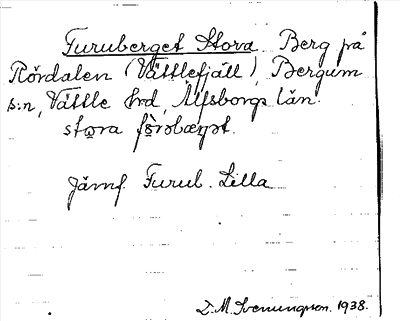 Furuberget Stora. Berg på
Rördalen (Vättlefjäll), Bergum
s:n, Vättle hrd, Älfsborgs län.
stora
Jämf. Furub. Lilla
D. M. Svenungson. 1938.